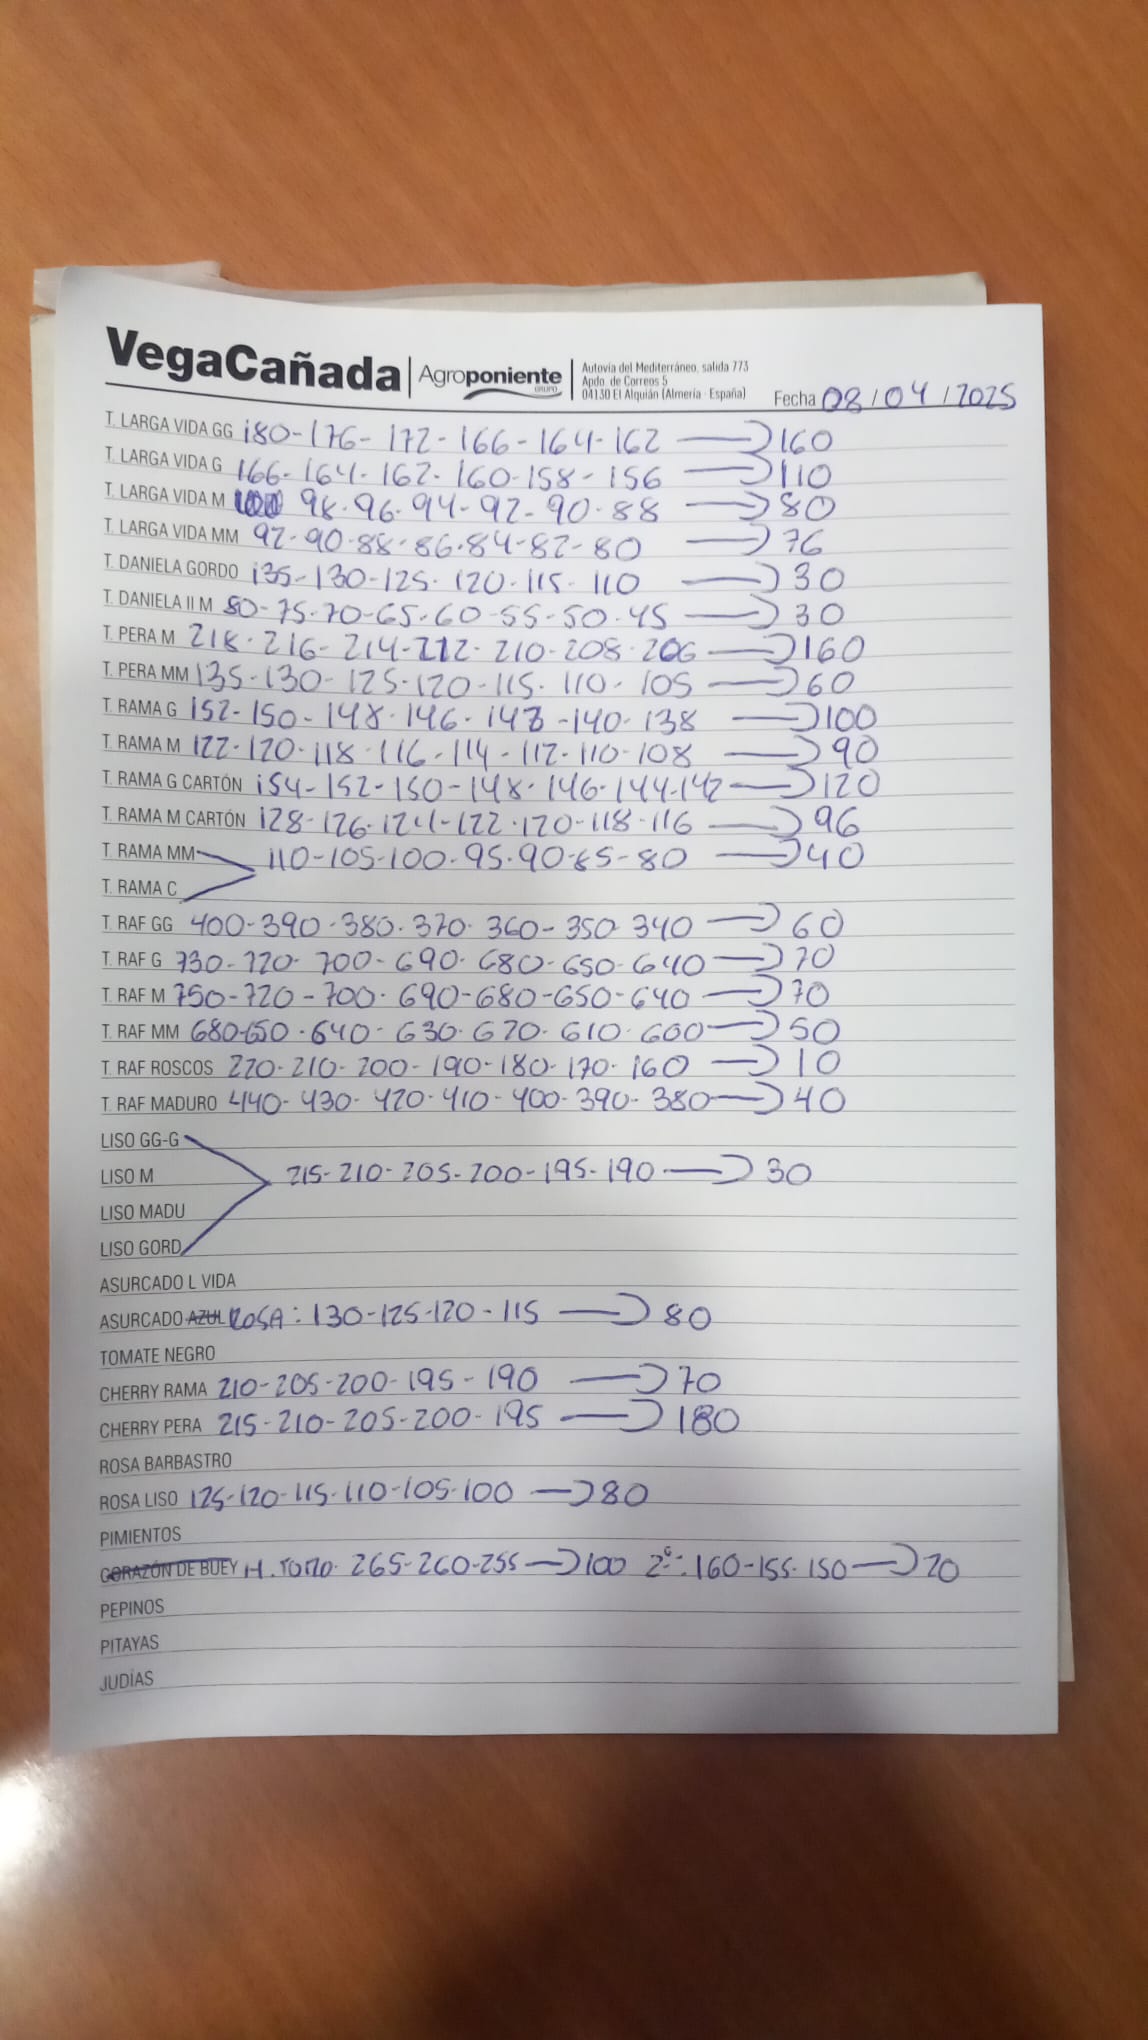 VegaCañada
Agroponiente
GRUPO
Autovía del Mediterráneo, salida 773
Apdo. de Correos 5
04130 El Alquián (Almería - España)
Fecha 08/04/2025
T. LARGA VIDA GG 180-176-172-166-164-162 → 160
T. LARGA VIDA G 166-164-162-160-158-156 → 110
T. LARGA VIDA M 100 98-96-94-92-90-88 → 80
T. LARGA VIDA MM 92-90-88-86-84-82-80 → 76
T. DANIELA GORDO 135-130-125-120-115-110 → 30
T. DANIELA II M 80-75-70-65-60-55-50-45 → 30
T. PERA M 218-216-214-212-210-208-206 → 160
T. PERA MM 135-130-125-120-115-110-105 → 60
T. RAMA G 152-150-148-146-143-140-138 → 100
T. RAMA M 122-120-118-116-114-112-110-108 → 90
T. RAMA G CARTÓN 154-152-150-148-146-144-142 → 120
T. RAMA M CARTÓN 128-126-124-122-120-118-116 → 96
T. RAMA MM 110-105-100-95-90-85-80 → 40
T. RAMA C
T. RAF GG 400-390-380-370-360-350-340 → 60
T. RAF G 730-720-700-690-680-650-640 → 70
T. RAF M 750-720-700-690-680-650-640 → 70
T. RAF MM 680-650-640-630-620-610-600 → 50
T. RAF ROSCOS 220-210-200-190-180-170-160 → 10
T. RAF MADURO 440-430-420-410-400-390-380 → 40
LISO GG-G
LISO M 215-210-205-200-195-190 → 30
LISO MADU
LISO GORD
ASURCADO L VIDA
ASURCADO AZUL ROSA: 130-125-120-115 → 80
TOMATE NEGRO
CHERRY RAMA 210-205-200-195-190 → 70
CHERRY PERA 215-210-205-200-195 → 180
ROSA BARBASTRO
ROSA LISO 125-120-115-110-105-100 → 80
PIMIENTOS
CORAZÓN DE BUEY H. TORO. 265-260-255 → 100 2º: 160-155-150 → 20
PEPINOS
PITAYAS
JUDÍAS